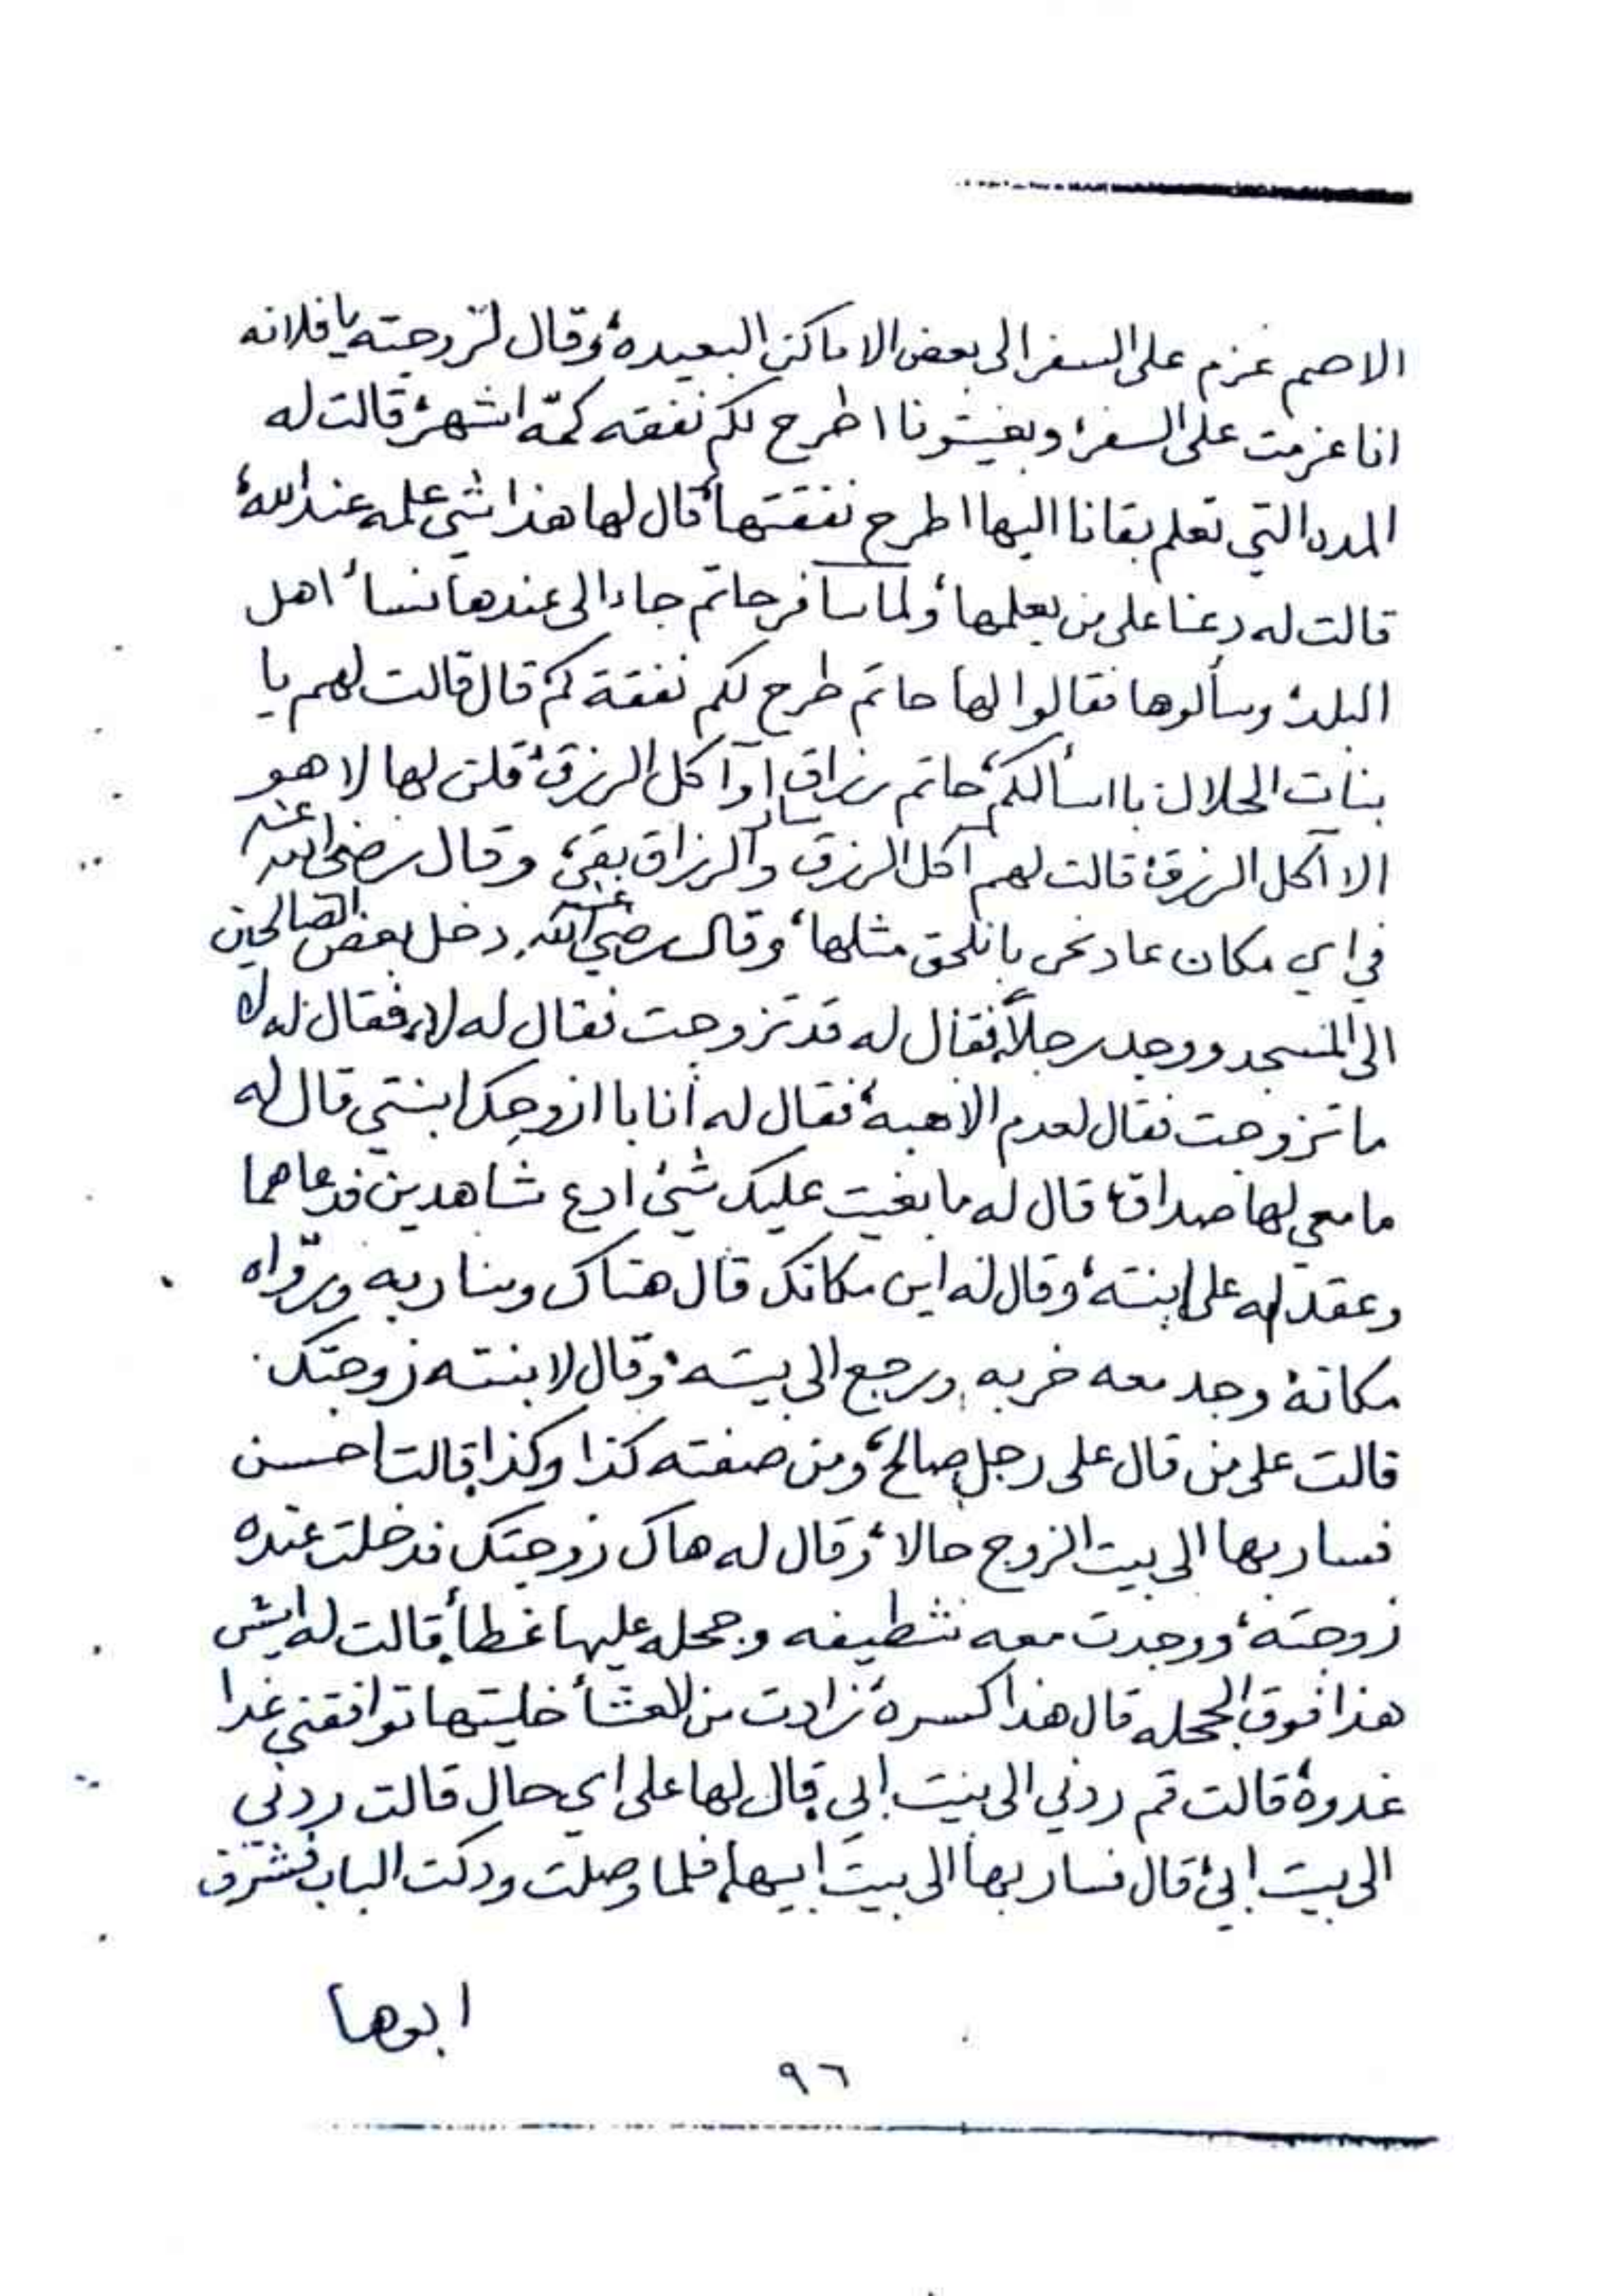 الاصم عزم على السفر الى بعض الاماكن البعيدة، وقال لزوجته يا فلانه
انا عزمت على السفر، وبغيتونا اطرح لكم نفقه كمّه اشهر، قالت له
المده التي تعلم بقانا اليها اطرح نفقتها، قال لها هذا شي علمه عند الله،
قالت له دعنا على من يعلمها، ولما سافر حاتم جاء الى عندها نسأ اهل
البلد، وسألوها فقالوا لها حاتم طرح لكم نفقة كم قال قالت لهم يا
بنات الحلال با اسألكم، حاتم رزاق اوآكل الرزق، قلن لها لا هو
الا آكل الرزق، قالت لهم آكل الرزق سافر والرزاق بقي، وقال رضي الله عنه
في اي مكان عاد نحن با نلحق مثلها، وقال رضي الله عنه دخل بعض الصالحين
الى المسجد ووجد رجلاً، فقال له قد تزوجت فقال له لا، فقال له لا
ما تزوجت فقال لعدم الاهبة، فقال له أنا با ازوجك ابنتي قال له
ما معي لها صداق، قال له ما بغيت عليك شئ ادع شاهدين فدعاهما
وعقد له على ابنته، وقال له اين مكانك قال هناك وسنا ربه وروّاه
مكانه، وجد معه خربه ورجع الى بيته، وقال لابنته زوجتك
قالت على من قال على رجل صالح، ومن صفته كذا وكذا قالت احسن
فسار بها الى بيت الزوج حالا، وقال له هاك زوجتك فدخلت عنده
زوجته، ووجدت معه شطيفه وجحله عليها غطأ، قالت له ايش
هذا فوق الجحله قال هذا كسرة زادت من العشأ خليتها توافقني غدا
غدوة، قالت قم ردني الى بيت ابي قال لها على اي حال قالت ردني
الى بيت ابي، قال فسار بها الى بيت ابيها، فلما وصلت ودكت الباب فشرّف
ابوها
٩٦